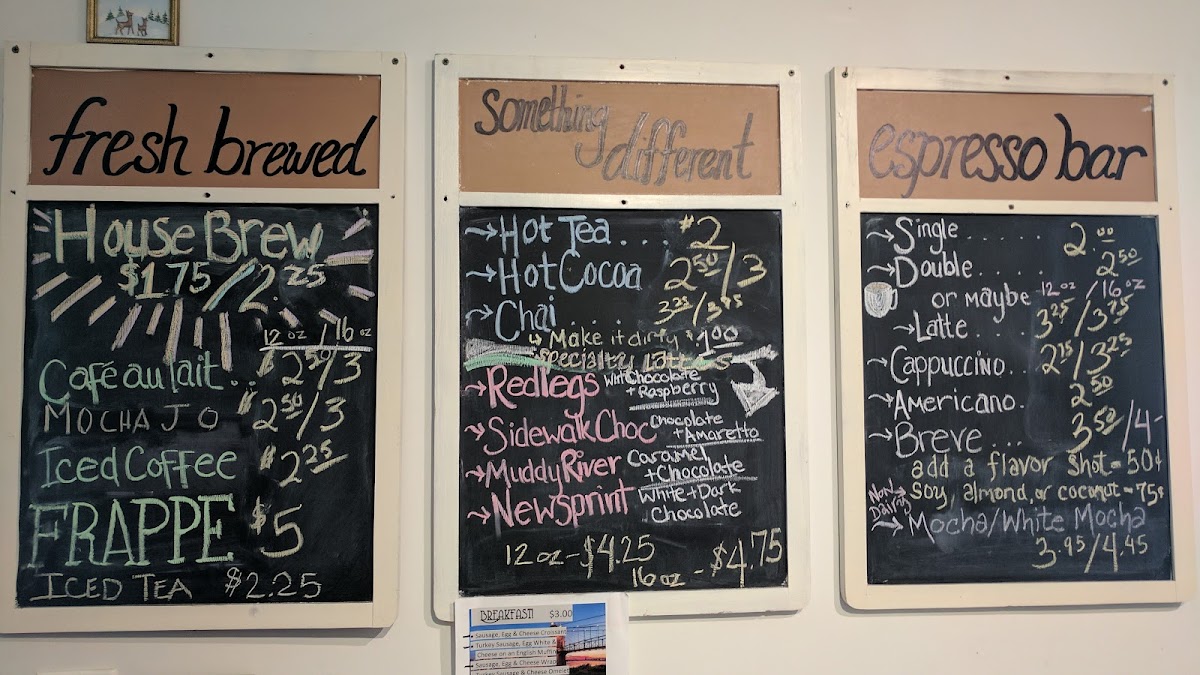 fresh brewed
House Brew
$1.75/2.25
12 oz / 16 oz
Café au lait .. $2.50/3
Mocha Jo $2.50/3
Iced Coffee $2.25
FRAPPE $5
Iced Tea $2.25
something
different
→Hot Tea . . . $2
→Hot Cocoa 2.50/3
→Chai . . . . 3.25/3.75
↳ Make it dirty $1.00
specialty lattes
→Redlegs with Chocolate + Raspberry
→Sidewalk Choc Chocolate + Amaretto
→Muddy River Caramel + Chocolate
→Newsprint White + Dark Chocolate
12 oz - $4.25
16 oz - $4.75
espresso bar
→Single . . . . . . 2.00
→Double . . . . . 2.50
or maybe 12 oz / 16 oz
→Latte . . . 3.25/3.75
→Cappuccino . . 2.75/3.25
→Americano . 2.50
→Breve . . . . 3.50/4-
add a flavor shot = 50¢
Non Dairy → soy, almond, or coconut = 75¢
→Mocha/White Mocha
3.95/4.45
BREAKFAST! $3.00
Sausage, Egg & Cheese Croissant
Turkey Sausage, Egg White &
Cheese on an English Muffin
Sausage, Egg & Cheese Wrap
Turkey Sausage & Cheese Omelet